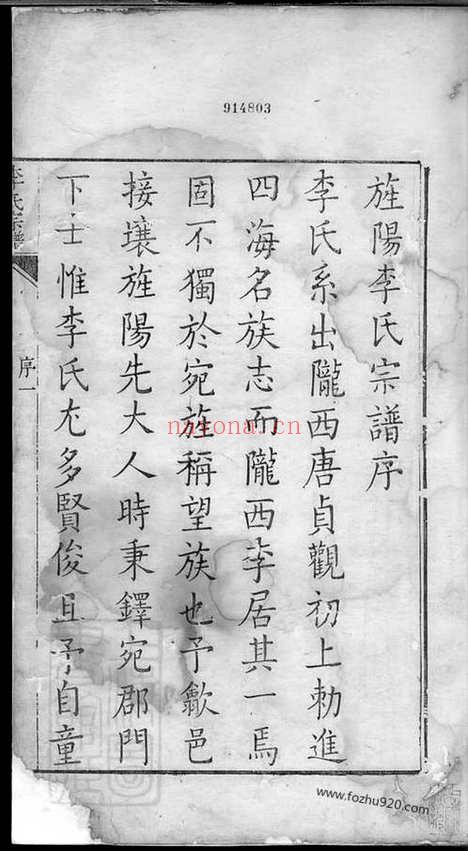 914803
旌陽李氏宗譜序
李氏系出隴西唐貞觀初上勅進
四海名族志而隴西李居其一焉
固不獨於宛旌稱望族也予歙邑
接壤旌陽先大人時秉鐸宛郡門
下士惟李氏尤多賢俊且予自童
李氏宗譜
序一
nayona.cn
www.fozhu920.com